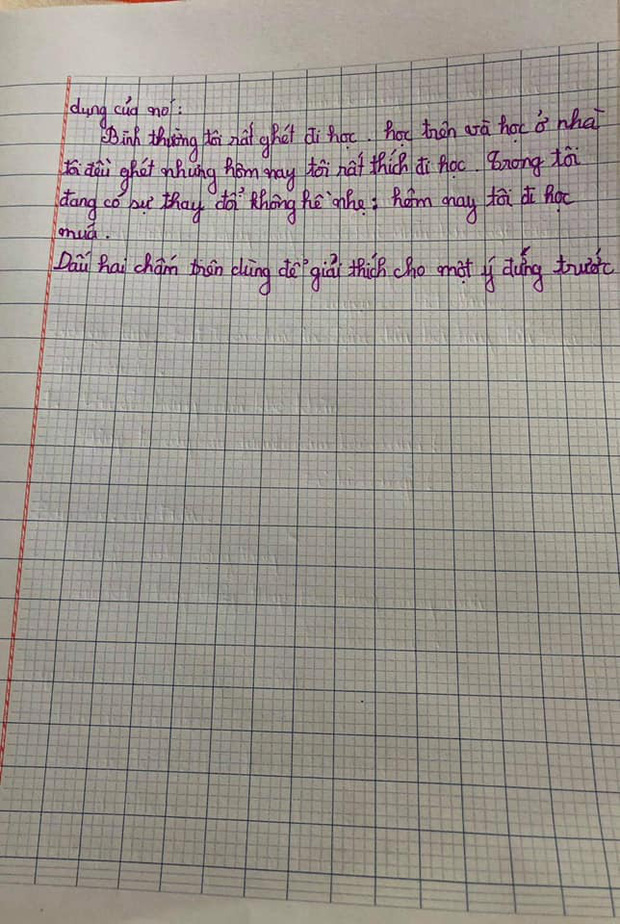 dụng của nó:
Bình thường tôi rất ghét đi học. học trên và học ở nhà
tôi đều ghét nhưng hôm nay tôi rất thích đi học. Trong tôi
đang có sự thay đổi không hề nhẹ: hôm nay tôi đi học
múa.
Dấu hai chấm trên dùng để giải thích cho một ý đứng trước